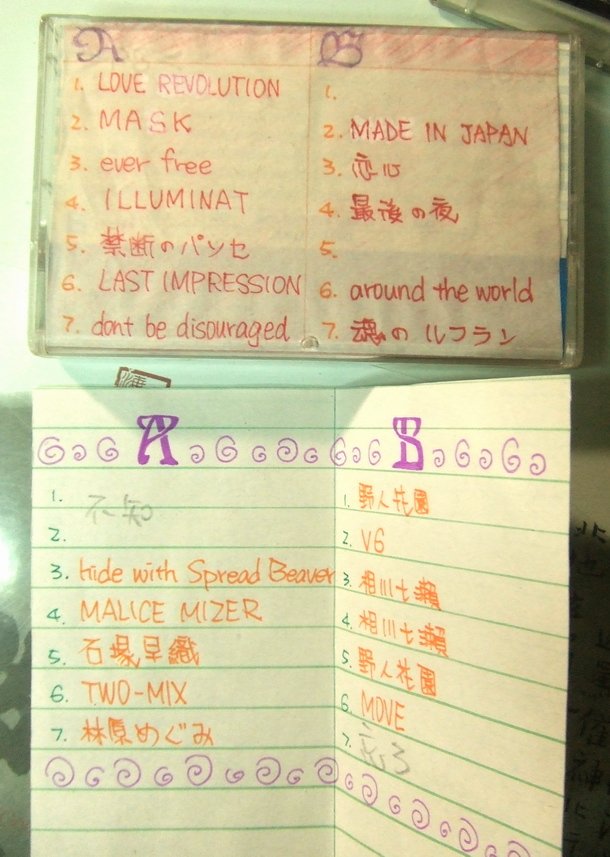 A
1. LOVE REVOLUTION
2. MASK
3. ever free
4. ILLUMINAT
5. 禁断のパンセ
6. LAST IMPRESSION
7. dont be disouraged
B
1.
2. MADE IN JAPAN
3. 恋心
4. 最後の夜
5.
6. around the world
7. 魂のルフラン
A
1. 不知
2.
3. hide with Spread Beaver
4. MALICE MIZER
5. 石塚早織
6. TWO-MIX
7. 林原めぐみ
B
1. 野人花園
2. V6
3. 相川七瀬
4. 相川七瀬
5. 野人花園
6. MOVE
7. 忘了